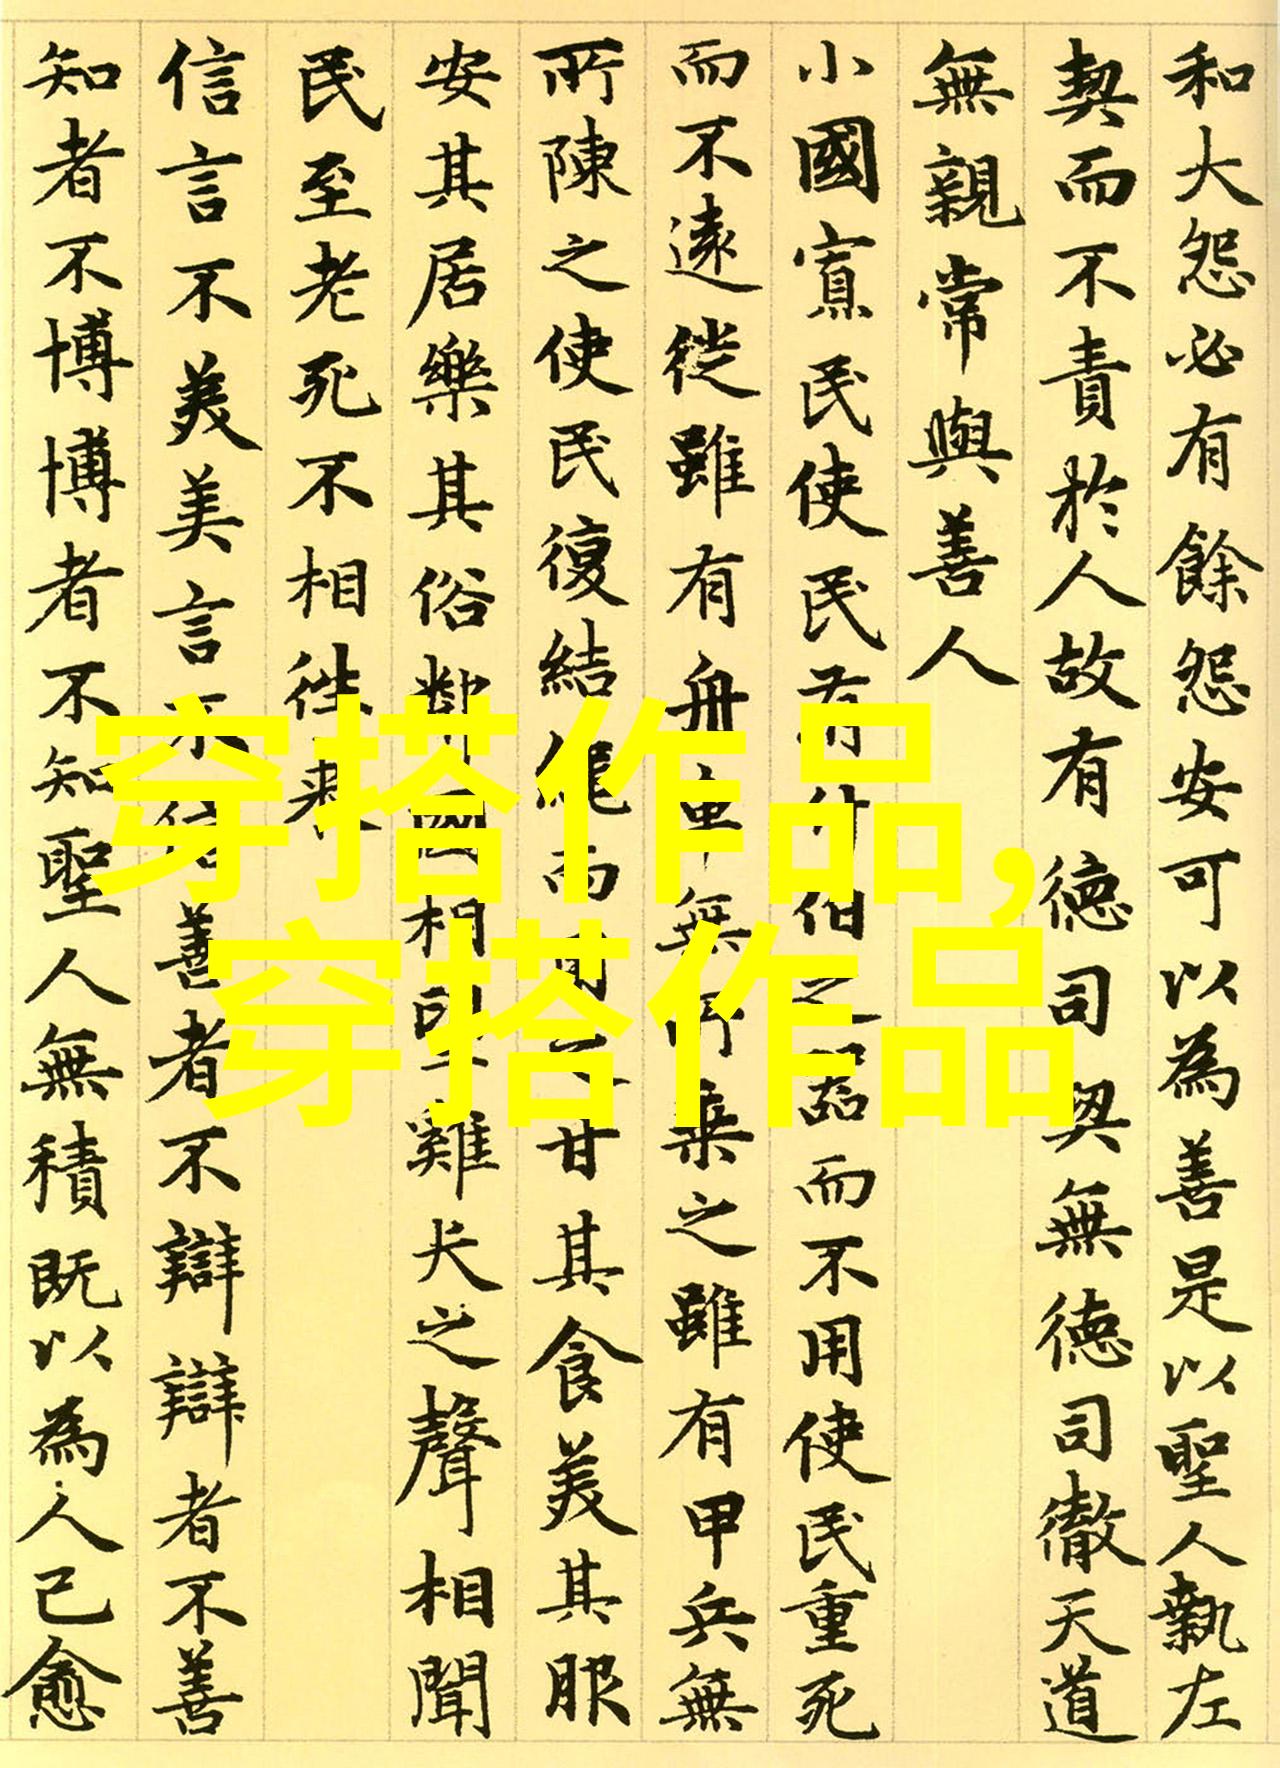 和大怨必有餘怨安可以為善是以聖人執左
契而不責於人故有德司契無德司徹天道
無親常與善人
小國寡民使民有什伯之器而不用使民重死
而不遠徙雖有舟車無所乘之雖有甲兵無
所陳之使民復結繩而用之甘其食美其服
安其居樂其俗鄰國相望雞犬之聲相聞
民至老死不相往来
信言不美美言不信善者不辯辯者不善
知者不博博者不知聖人無積既以為人己愈
穿搭作品,
穿搭作品